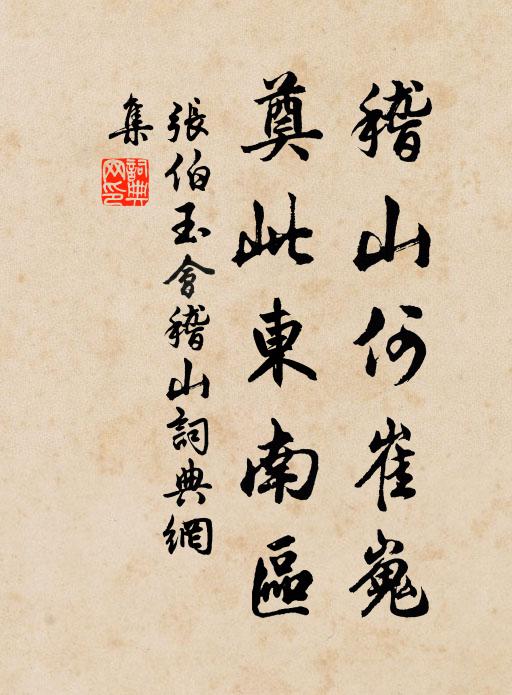 稽山何崔嵬
奠此東南區
張伯玉會稽山詞典網
集
詞典
网印